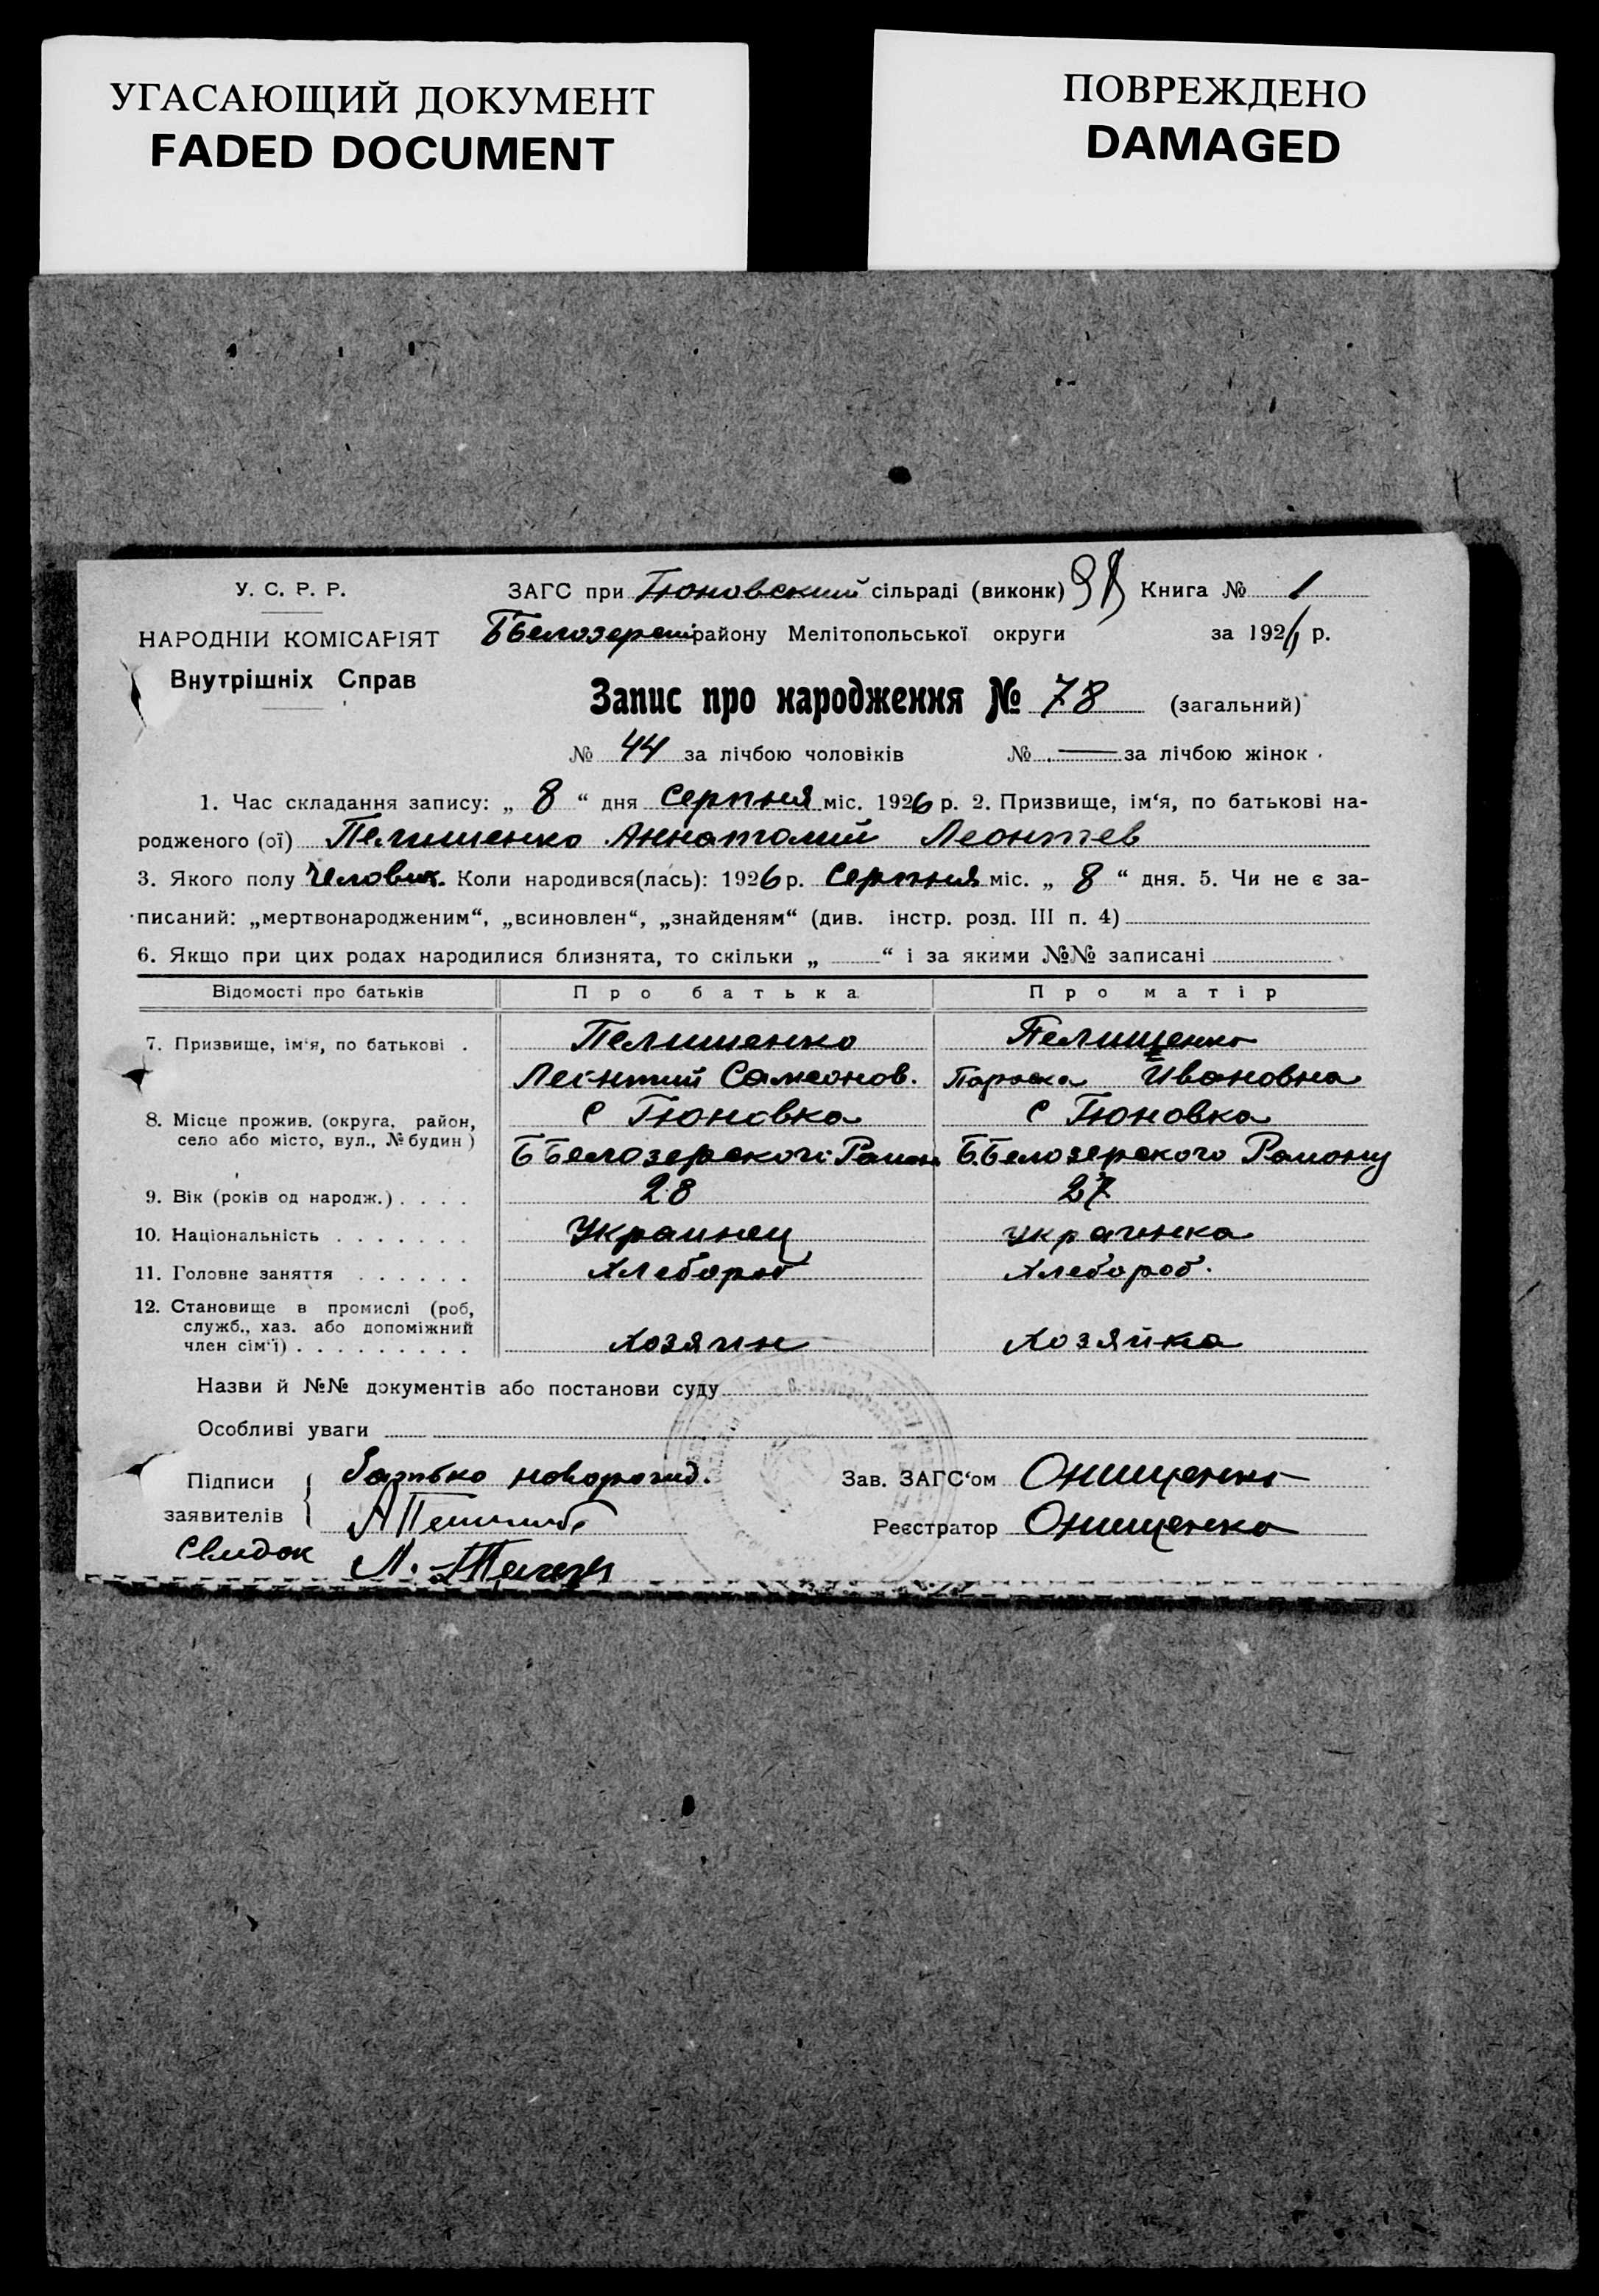 УГАСАЮЩИЙ ДОКУМЕНТ
FADED DOCUMENT
ПОВРЕЖДЕНО
DAMAGED
У. С. Р. Р.
НАРОДНІЙ КОМІСАРІЯТ
Внутрішніх Справ
ЗАГС при Тюновский сільраді (виконк) Книга № 1
району Мелітопольської округи за 192 р.
Запис про народження № 78 (загальний)
№ 44 за лічбою чоловіків № — за лічбою жінок
1. Час складання запису: „ 8 “ дня Серпня міс. 1926 р. 2. Призвище, ім‘я, по батькові на-
родженого (ої) Пелишенко Аннатолий Леонтев
3. Якого полу Человик. Коли народився(лась): 1926 р. Серпня міс. „ 8 “ дня. 5. Чи не є за-
писаний: „мертвонародженим“, „всиновлен“, „знайденям“ (див. інстр. розд. III п. 4)
6. Якщо при цих родах народилися близнята, то скільки „ “ і за якими №№ записані
Відомості про батьків Про батька Про матір
7. Призвище, ім‘я, по батькові . Пелишенко Пелищенко
Леонтий Самсонов. Параска Ивановна
8. Місце прожив. (округа, район, село або місто, вул., № будин) С Тюновка С Тюновка
Б Белозерского Б.Белозерского Району
9. Вік (років од народж.) . . . . 28 27
10. Національність . . . . . . . Украинец украинка
11. Головне заняття . . . . . . Хлебороб Хлебороб.
12. Становище в промислі (роб,
служб., хаз. або допоміжний
член сім‘ї) . . . . . . . . . Хозяин Хозяйка
Назви й №№ документів або постанови суду
Особливі уваги
Підписи
заявителів
Батько новорожд.
Свидок
Зав. ЗАГС‘ом Онищенко
Реєстратор Онищенко